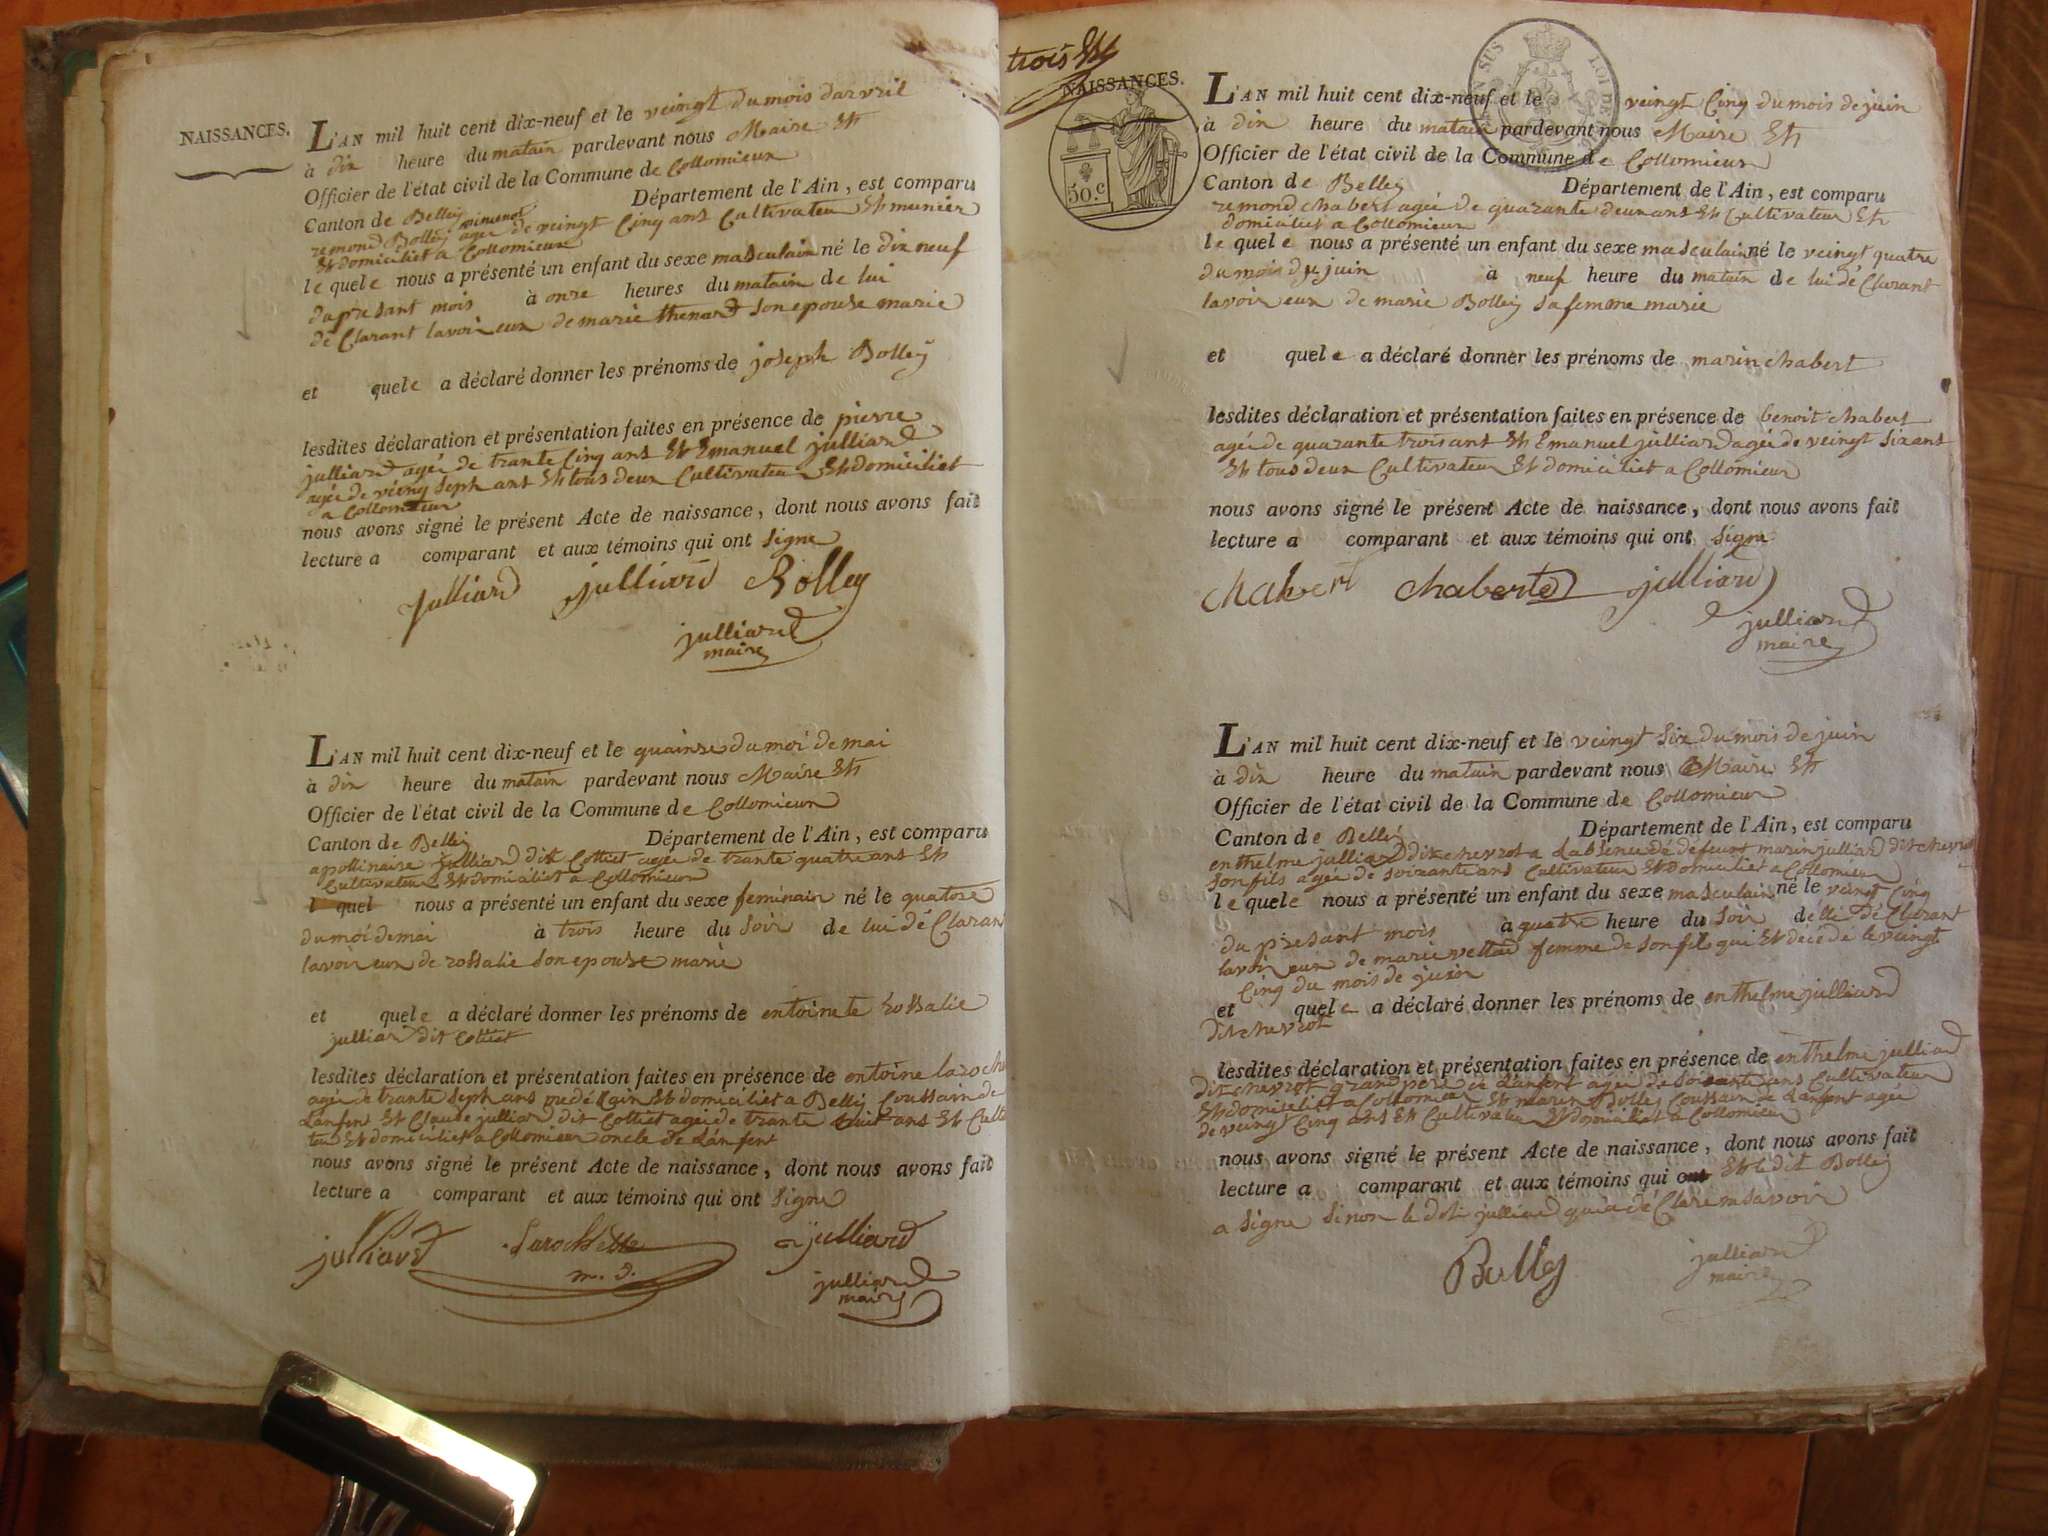 NAISSANCES.
L'AN mil huit cent dix-neuf et le veingt du mois davvril
à dix heure du matain pardevant nous Maire Et
Officier de l'état civil de la Commune de Collomieux
Canton de Belley Département de l'Ain, est comparu
remond Bolley agée de veingt Cinq ans Cultivateur Et munier
Et domiciliet a Collomieux
le quele nous a présenté un enfant du sexe masculain né le dix neuf
du présant mois à onze heures du matain de lui
dé Clarant lavoir eux de marie thenard son epouse marie
et quele a déclaré donner les prénoms de joseph Bolley
lesdites déclaration et présentation faites en présence de pierre
julliard agée de trante Cinq ans Et Emanuel julliard
agée de véing seph ans Et tous deux Cultivateur Et domiciliet
a Collomieux
nous avons signé le présent Acte de naissance, dont nous avons fait
lecture a comparant et aux témoins qui ont signe
julliard julliard Bolley
julliard
maire
L'AN mil huit cent dix-neuf et le quainse du moi de mai
à dix heure du matain pardevant nous Maire Et
Officier de l'état civil de la Commune de Collomieux
Canton de Belley Département de l'Ain, est comparu
apollinaire julliard dit Cottiet agée de trante quatre ans Et
Cultivateur Et domiciliet a Collomieux
l quel nous a présenté un enfant du sexe feminain né le quatorse
du moi de mai à trois heure du soir de lui dé Claran
lavoir eux de rossalie son epouse marie
et quele a déclaré donner les prénoms de entoinete rossalie
julliard dit Cottiet
lesdites déclaration et présentation faites en présence de entoine laroche
agée de trante seph ans Et domiciliet a Belley Coussain de
Lanfent Et Claude julliard dit Cottiet agée de trante huit ans Et Culti
teur Et domiciliet a Collomieux oncle de Lanfent
nous avons signé le présent Acte de naissance, dont nous avons fait
lecture a comparant et aux témoins qui ont signe
julliard Larochette a julliard
m. d.
julliard
maire
trois Et
NAISSANCES.
50.c
L'AN mil huit cent dix-neuf et le veingt Cinq du mois de juin
à dix heure du matain pardevant nous Maire Et
Officier de l'état civil de la Commune de Collomieux
Canton de Belley Département de l'Ain, est comparu
remond chabert agée de quarante deux ans Et Cultivateur Et
domiciliet a Collomieux
le quel e nous a présenté un enfant du sexe masculain né le veingt quatre
du mois de juin à neuf heure du matain de lui dé Clarant
lavoir eux de marie Bolley sa femme marie
et quel e a déclaré donner les prénoms de marin chabert
lesdites déclaration et présentation faites en présence de benoit chabert
agée de quarante trois ans Et Emanuel julliard agée de veingt six ans
Et tous deux Cultivateur Et domiciliet a Collomieux
nous avons signé le présent Acte de naissance, dont nous avons fait
lecture a comparant et aux témoins qui ont signe
chabert chabert julliard
julliard
maire
L'AN mil huit cent dix-neuf et le veingt six du mois de juin
à dix heure du matain pardevant nous Maire Et
Officier de l'état civil de la Commune de Collomieux
Canton de Belley Département de l'Ain, est comparu
enthelme julliard dit chevrot a Labsence dé defeunt marin julliard dit chevrot
son fils agée de soixante ans Cultivateur Et domiciliet a Collomieux
le quele nous a présenté un enfant du sexe masculain né le veingt Cinq
du présant mois à quatre heure du soir de lui dé Clarant
lavoir eux de marie femme de son fils qui Et décédé le veingt
Cinq du mois de juin
et quel e a déclaré donner les prénoms de enthelme julliard
dit chevrot
lesdites déclaration et présentation faites en présence de enthelme julliard
dit chevrot grand pere de Lanfent agée de soixante ans Cultivateur
Et domiciliet a Collomieux Et marin Bolley Coussain de Lanfent agée
de veingt Cinq ans Et Cultivateur Et domiciliet a Collomieux
nous avons signé le présent Acte de naissance, dont nous avons fait
lecture a comparant et aux témoins qui ont Et le dit Bolley
a signe sinon le dit julliard qui a dé Clare savoir
Bolley julliard
maire